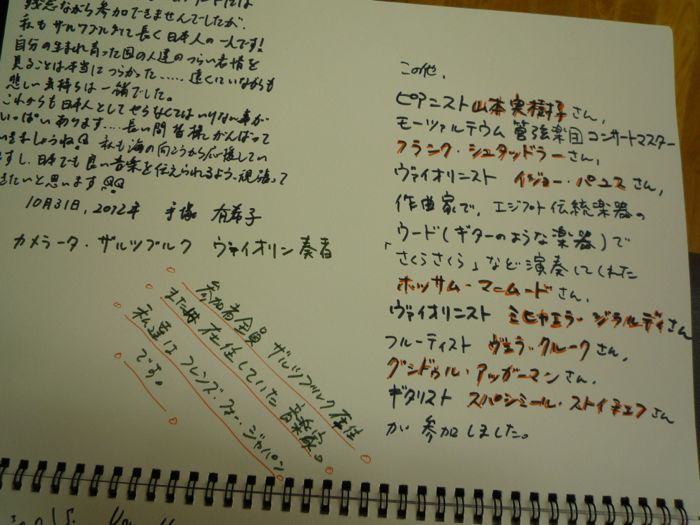 残念ながら参加できませんでしたが、
私もザルツブルクで長く日本人の一人です!
自分の生まれ育った国の人達のつらい表情を
見ることは本当につらかった..... 遠くにいながらも
悲しい気持ちは一緒でした。
これからも日本人としてやらなくてはいけない事が
いっぱいあります.... 長い間皆様がんばって
いきましょうね 私も海の向こうから応援してい
ますし、日本でも良い音楽を伝えられるよう、頑張って
きたいと思います
10月31日, 2012年 手塚 有希子
カメラータ・ザルツブルク ヴァイオリン奏者
参加者全員 ザルツブルク在住
または在住していた音楽家。
私達はフレンズ・フォー・ジャパン
です。
この他、
ピアニスト山本実樹子さん、
モーツァルテウム管弦楽団コンサートマスター
フランク・シュタッドラーさん、
ヴァイオリニスト イジョー・バユスさん、
作曲家で、エジプト伝統楽器の
ウード(ギターのような楽器)で
「さくらさくら」など演奏してくれた
ホッサム・マームードさん、
ヴァイオリニスト ミヒャエラ・ジラルディさん
フルーティスト ヴェラ・クルークさん、
グンドゥル・アッガーマンさん、
ギタリスト スパシミール・ストイチェフさん
が参加しました。